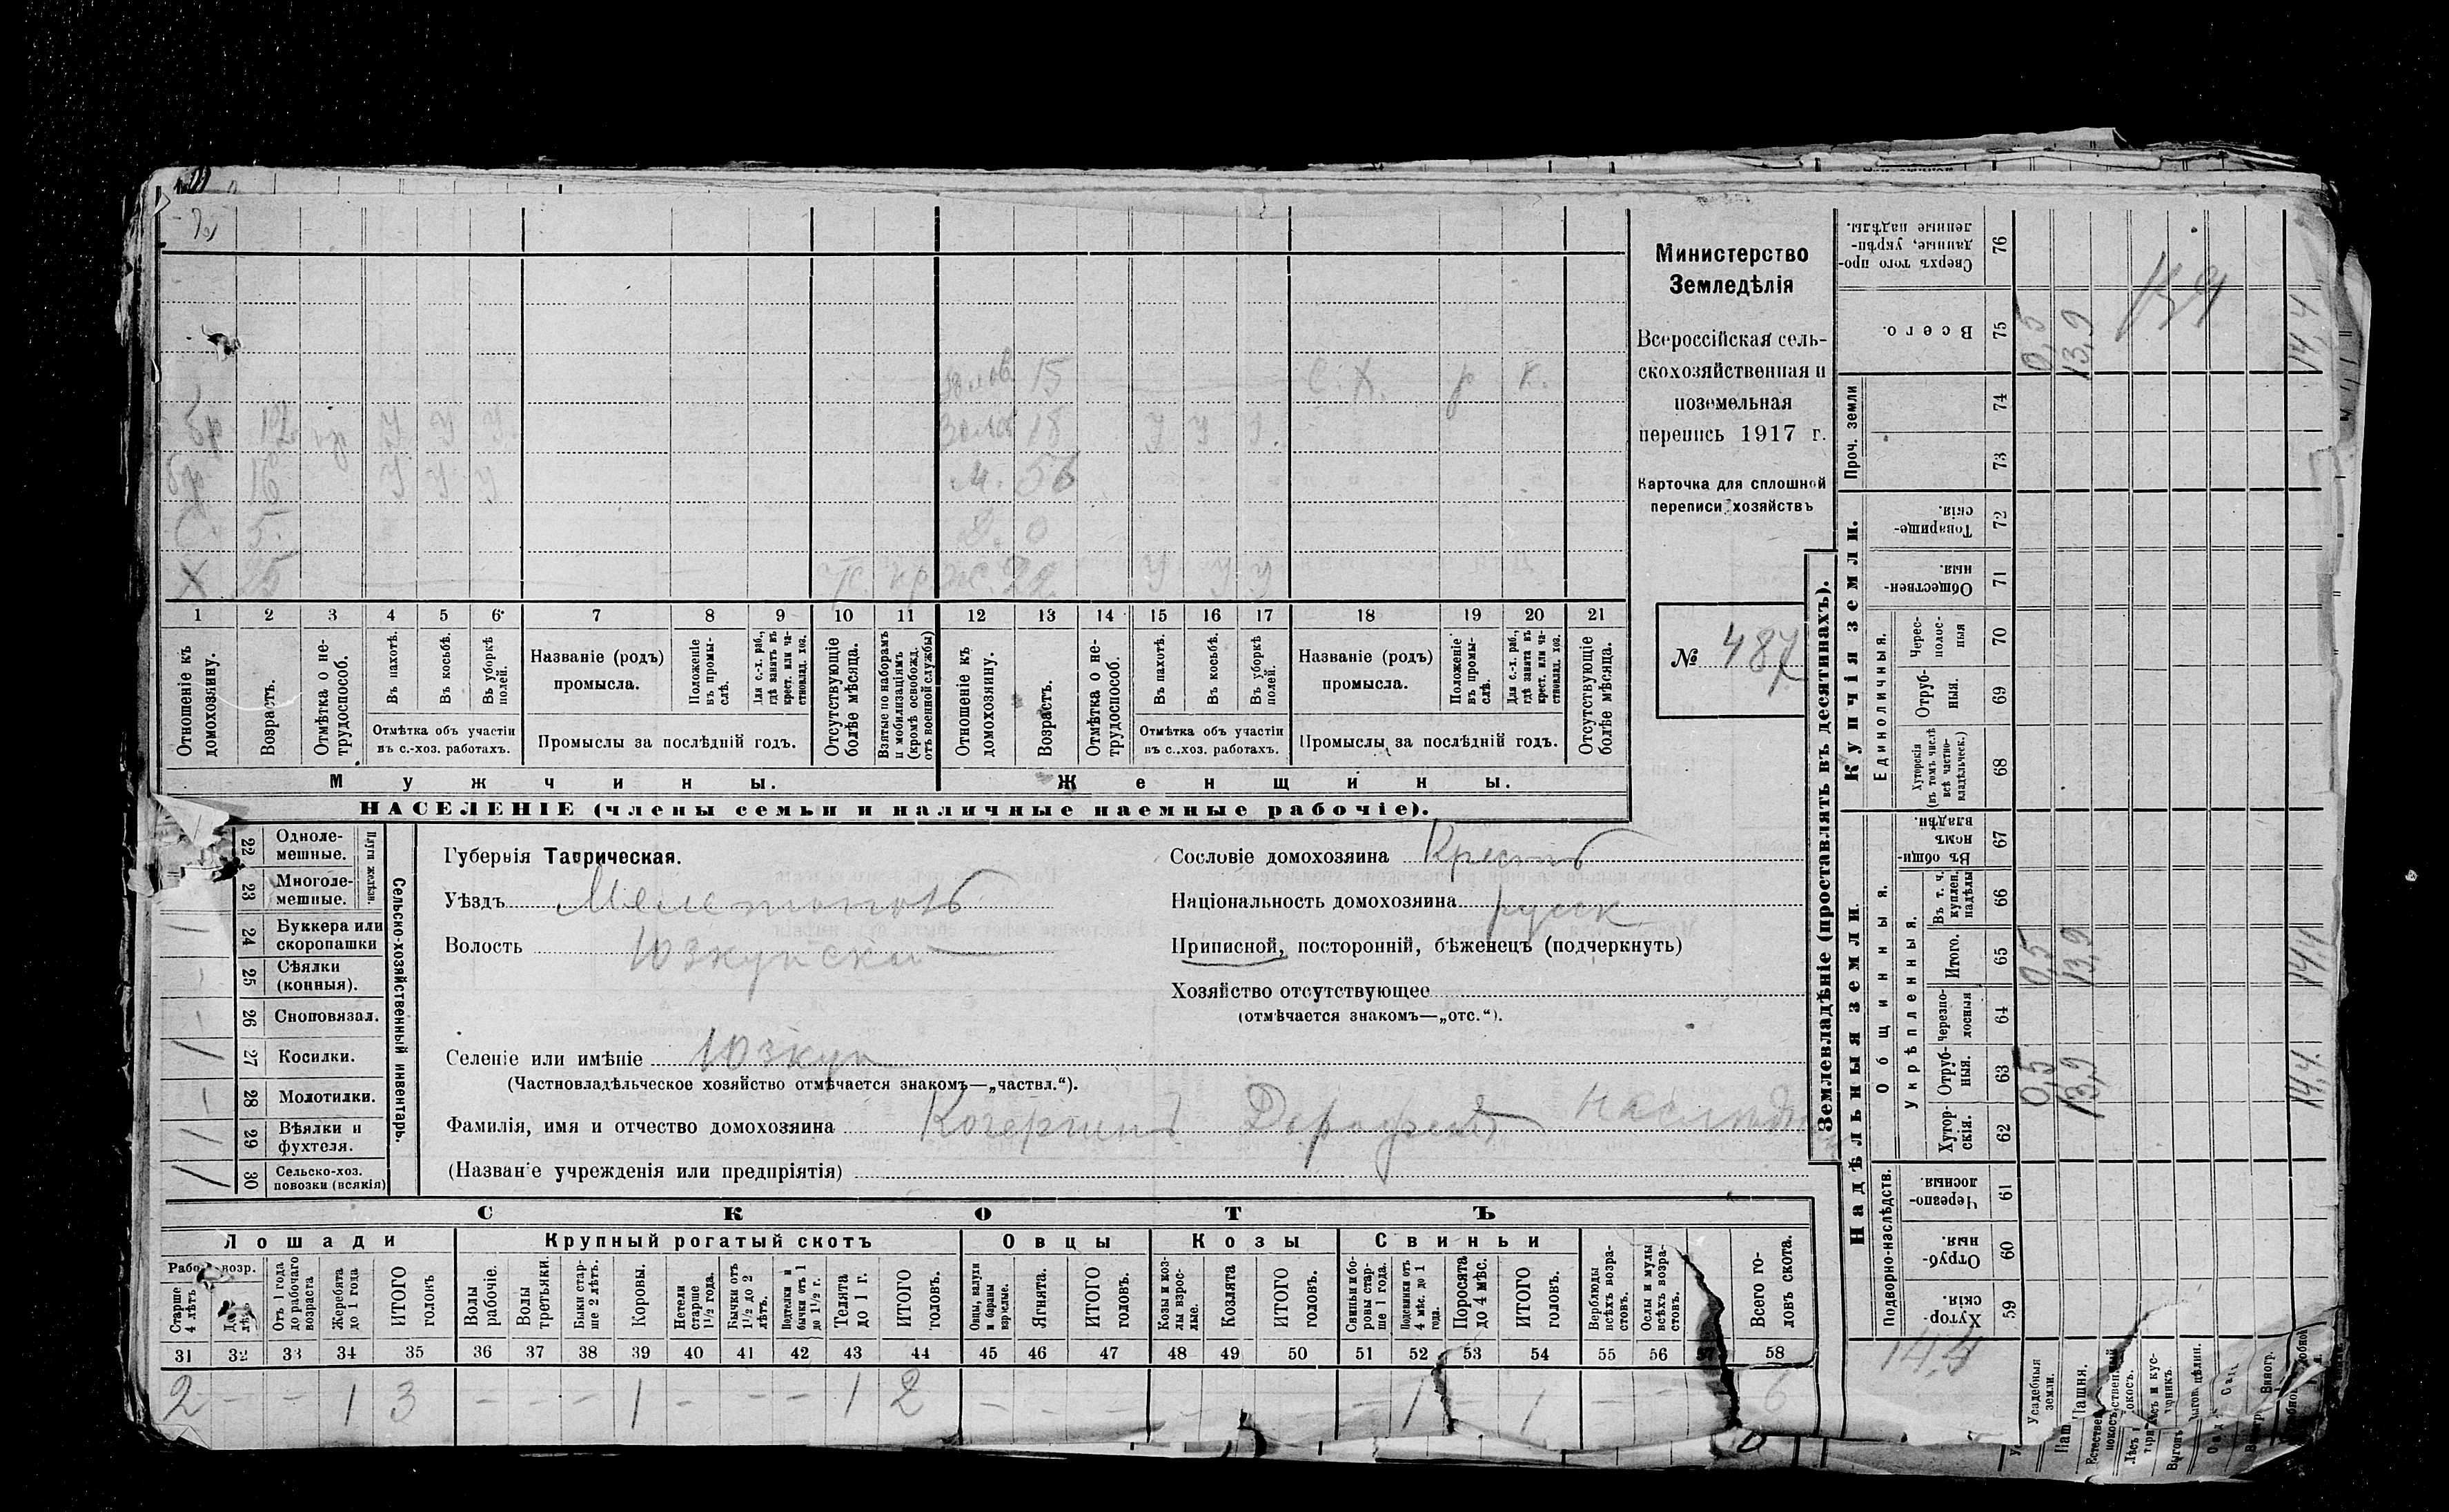 бр 12 нр У У У
бр 16 У У У
С. 5.
Х 25
золов 15 С. Х. р К.
золов 18 У У У
М. 56
Д. 0
ж 22 У У У
1 2 3 4 5 6 7 8 9 10 11 12 13 14 15 16 17 18 19 20 21
Отношеніе къ домохозяину.
Возрастъ.
Отмѣтка о не-трудоспособ.
Въ пахотѣ.
Въ косьбѣ.
Въ уборкѣ полей.
Отмѣтка объ участіи
въ с.-хоз. работахъ.
Названіе (родъ)
промысла.
Положеніе въ промы-слѣ.
Для с.-х. раб., гдѣ занятъ въ крест. или ча-стновлад. хоз.
Промыслы за послѣдній годъ.
Отсутствующіе болѣе мѣсяца.
Взятые по наборамъ и мобилизаціямъ (кромѣ освобожд. отъ военной службы)
Отношеніе къ домохозяину.
Возрастъ.
Отмѣтка о не-трудоспособ.
Въ пахотѣ.
Въ косьбѣ.
Въ уборкѣ полей.
Отмѣтка объ участіи
въ с.-хоз. работахъ.
Названіе (родъ)
промысла.
Положеніе въ промы-слѣ.
Для с.-х. раб., гдѣ занятъ въ крест. или ча-стновлад. хоз.
Промыслы за послѣдній годъ.
Отсутствующіе болѣе мѣсяца.
Мужчины. Женщины.
НАСЕЛЕНІЕ (члены семьи и наличные наемные рабочіе).
Министерство
Земледѣлія
Всероссійская сель-
скохозяйственная и
поземельная
перепись 1917 г.
Карточка для сплошной
переписи хозяйствъ
№ 487
22 Одноле-мешные.
23 Многоле-мешные.
Плуги желѣзн.
24 Буккера или скоропашки
25 Сѣялки (конныя).
26 Сноповязал.
27 Косилки. 1
28 Молотилки.
29 Вѣялки и фухтеля. 1
30 Сельско-хоз. повозки (всякія) 1
Сельско-хозяйственный инвентарь.
Губернія Таврическая.
Уѣздъ Мелетополь
Волость Юзкуйска
Селеніе или имѣніе Юзкуи
(Частновладѣльческое хозяйство отмѣчается знакомъ—„частвл.“).
Фамилія, имя и отчество домохозяина Кочергинъ Дорофей
(Названіе учрежденія или предпріятія)
Сословіе домохозяина Крестъ
Національность домохозяина русск
Приписной, посторонній, бѣженецъ (подчеркнуть)
Хозяйство отсутствующее
(отмѣчается знакомъ—„отс.“).
СКОТЪ
Лошади Крупный рогатый скотъ Овцы Козы Свиньи
Старше 4 лѣтъ
Отъ 1 года до рабочаго возраста
Жеребята до 1 года
ИТОГО головъ
Волы рабочіе.
Волы третьяки.
Быки стар-ше 2 лѣтъ.
Коровы.
Нетели старше 1½ года.
Бычки отъ 1½ до 2 лѣтъ.
Подтелки и бычки отъ 1 до 1½ г.
Телята до 1 г.
ИТОГО головъ.
Овцы, валухи и бараны взрослые.
Ягнята.
ИТОГО головъ.
Козы и коз-лы взрос-лые.
Козлята
ИТОГО головъ.
Свиньи и бо-ровы стар-ше 1 года.
Подсвинки отъ 4 мѣс. до 1 года.
Поросята до 4 мѣс.
ИТОГО головъ.
Верблюды всѣхъ возра-стовъ.
Ослы и мулы всѣхъ возра-стовъ.
Всего го-ловъ скота.
31 32 33 34 35 36 37 38 39 40 41 42 43 44 45 46 47 48 49 50 51 52 53 54 55 56 57 58
2 - - 1 3 - - - 1 - - - 1 2 - - - - - - - 1 - 1 - - 6
Землевладѣніе (проставлять въ десятинахъ).
Купчія земли.
Надѣльныя земли.
Сверхъ того про-данные, укрѣп-ленные надѣлы. 76
Всего. 75 0,5 13,9 14,4
Проч. земли 74 73
Товарище-скія. 72
Обществен-ныя. 71
Единоличныя.
Черес-полос-ныя 70
Отруб-ныя. 69
Хуторскія (въ томъ числѣ всѣ частно-владѣльческ.) 68
Общинныя.
Въ общи-номъ владѣн. 67
Укрѣпленныя.
Въ т. ч. куплен. надѣлы 66
Итого. 65 0,5 13,9 14,4
Черезпо-лосныя 64
Отруб-ныя. 63 0,5 13,9 14,4
Хутор-скія. 62
Подворно-наслѣдств.
Черезпо-лосныя. 61
Отруб-ныя. 60
Хутор-скія. 59
14,4
Усадебныя земли.
Пашня.